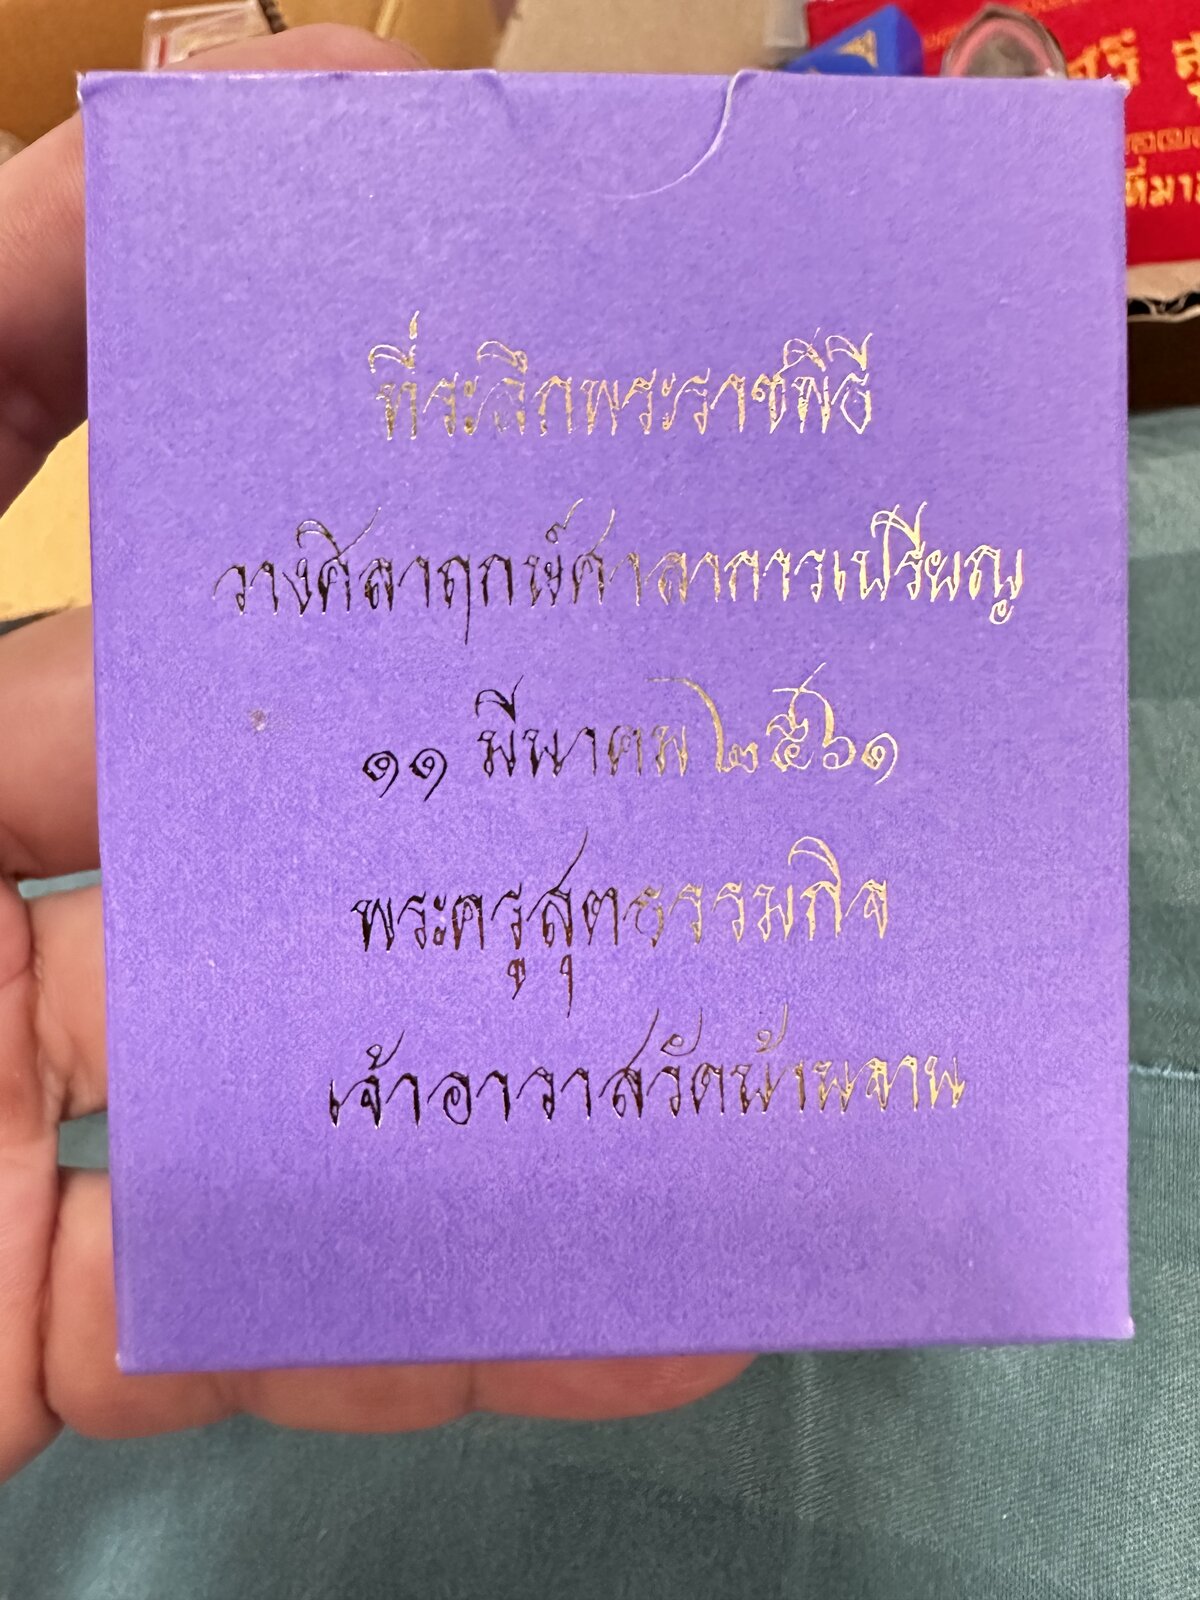 ที่ระลึกพระราชพิธี
วางศิลาฤกษ์ศาลาการเปรียญ
๑๑ มีนาคม ๒๕๖๑
พระครูสุตธรรมกิจ
เจ้าอาวาสวัดบ้านจาน
ที่มา